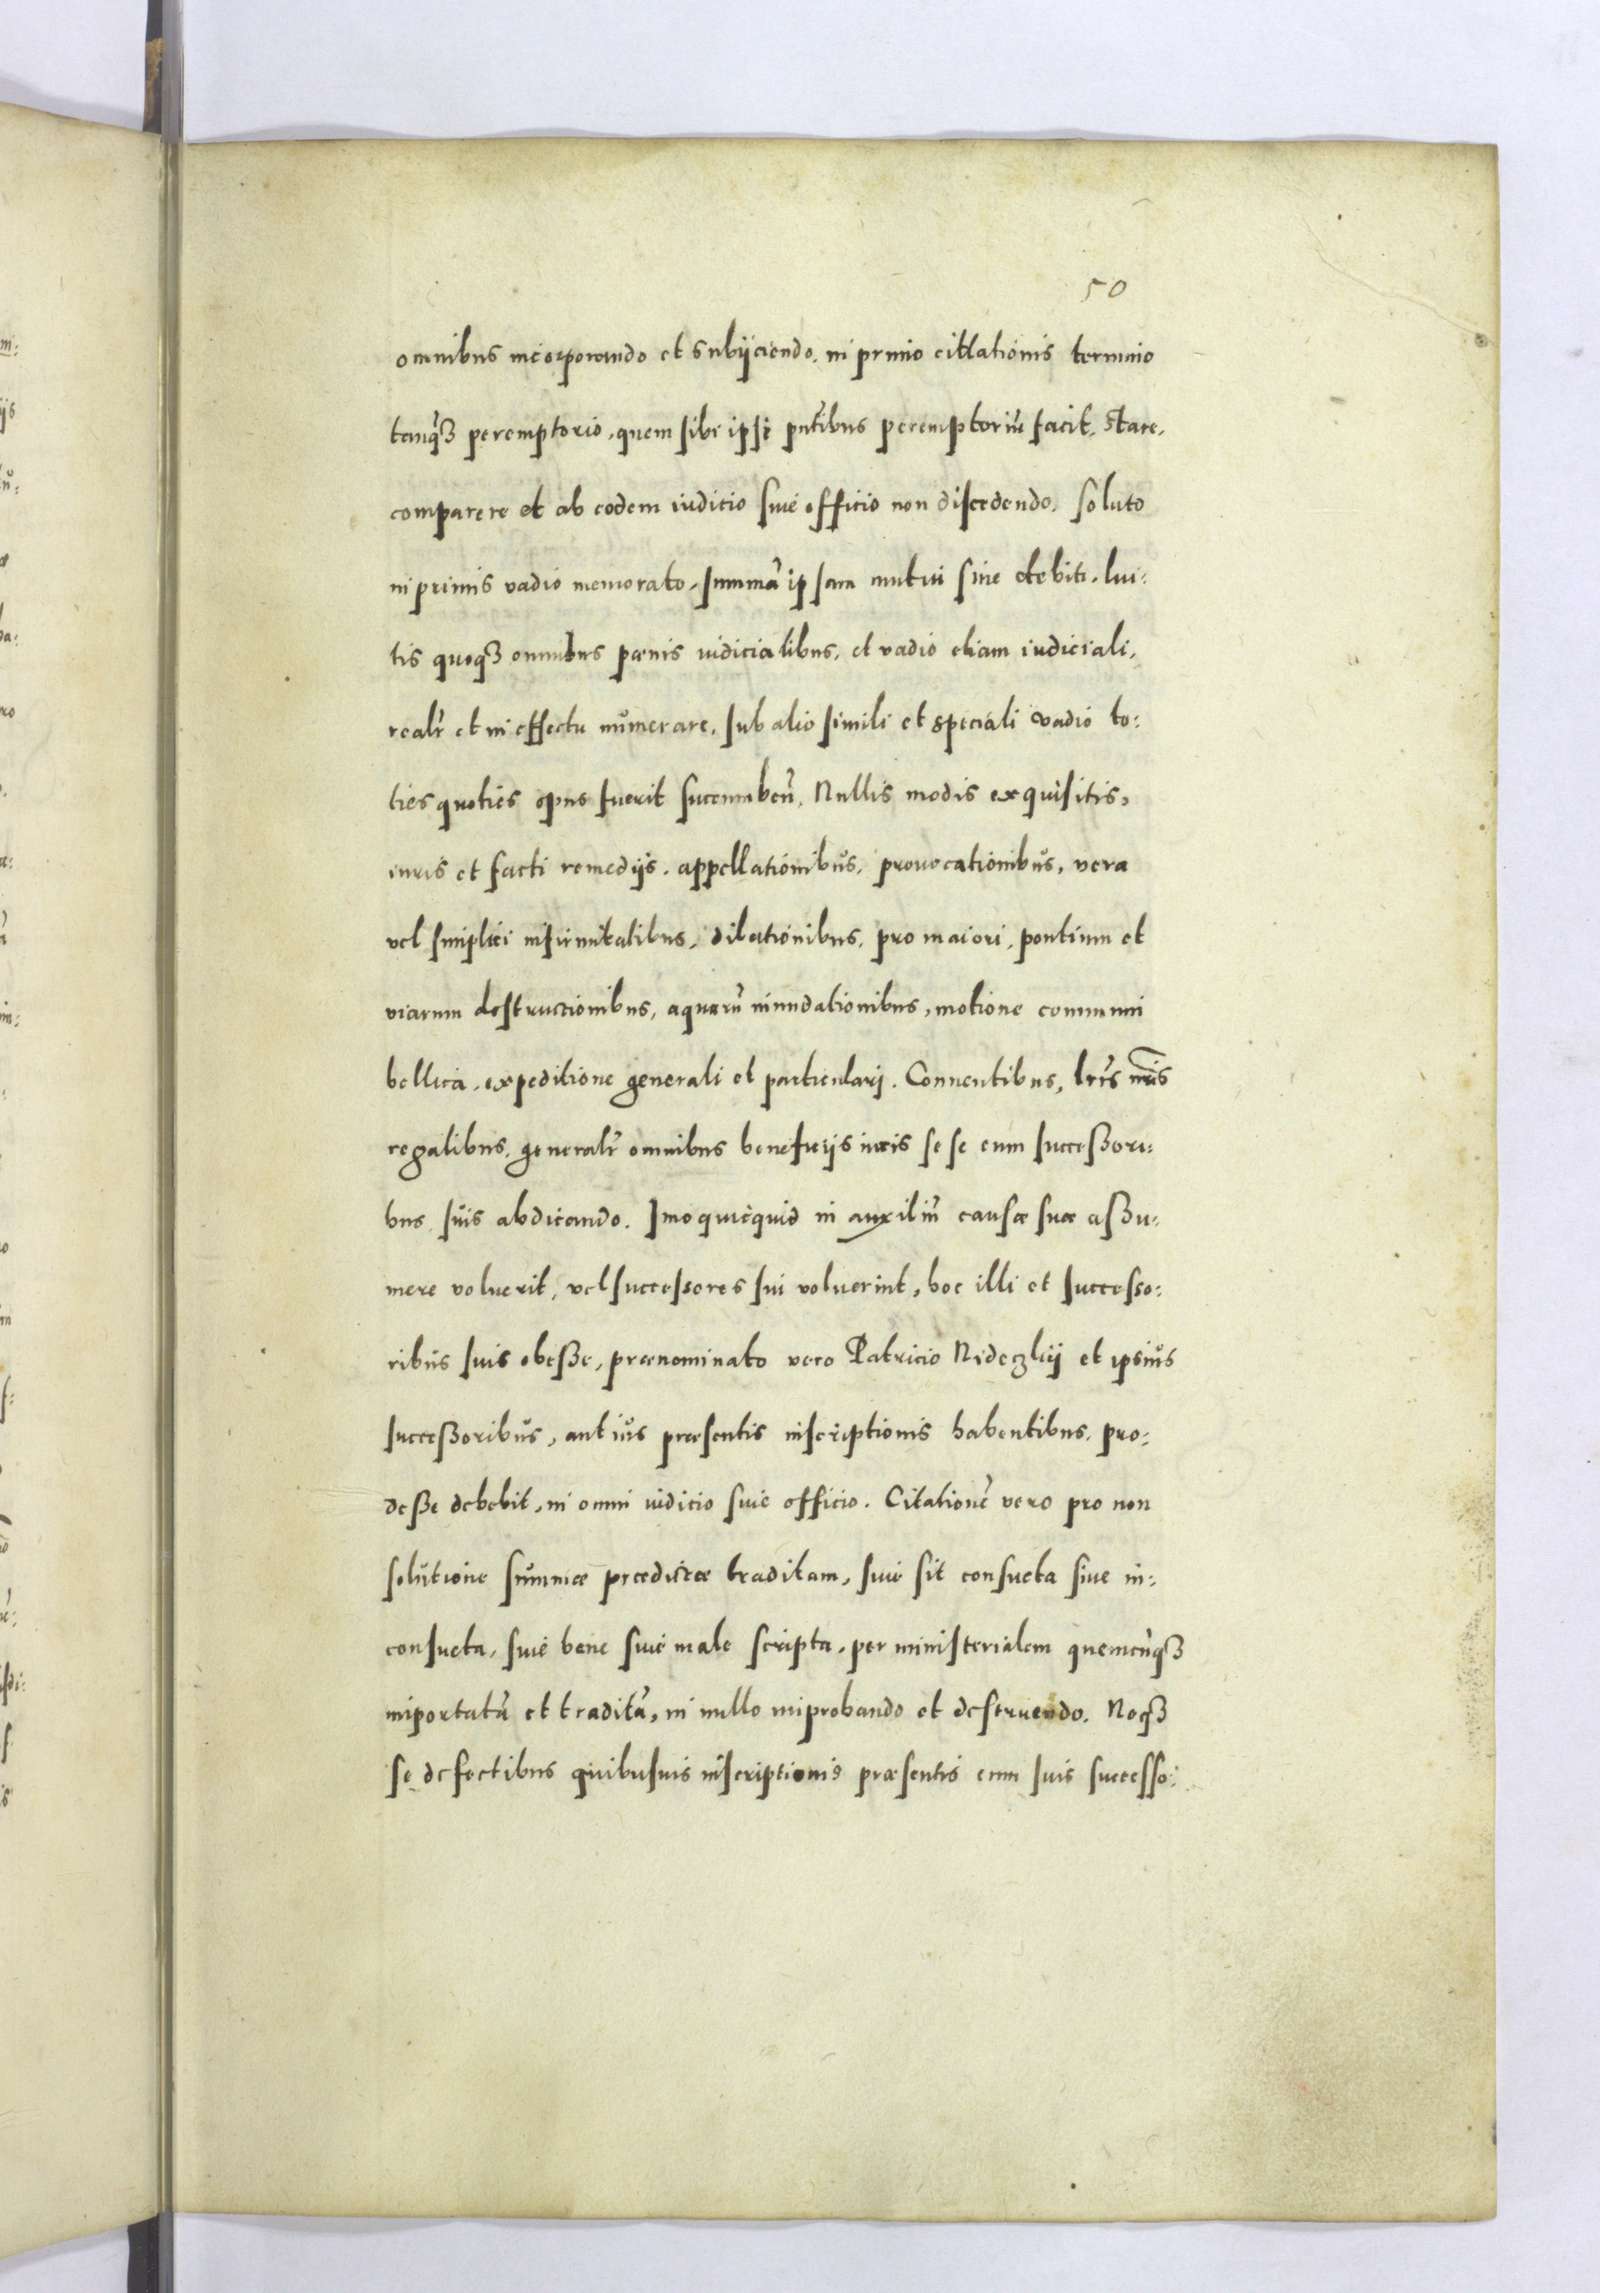 50
omnibus incorporando et subijciendo, in primo citlationis termino
tanq̃ȝ peremptorio, quem sibi ipsi pñtibus peremptoriũ facit, stare,
comparere et ab eodem iuditio siue officio non discedendo, soluto
in primis vadio memorato, summã ipsam mutui siue debiti, lui:
tis quoqȝ omnibus pœnis iudicialibus, et vadio etiam iudiciali,
realr̃ et in effectu numerare, sub alio simili et speciali vadio to:
ties quoties opus fuerit succumbeñ. Nullis modis exquisitis,
iuris et facti remedijs, appellationibus, prouocationibus, vera
vel simplici infirmitatibus, dilationibus, pro maiori, pontium et
viarum destructionibus, aquarũ inundationibus, motione communi
bellica, expeditione generali et particulari. Conuentibus, lrĩs nrĩs
regalibus, generalr̃ omnibus beneficijs iuris se se cum successori:
bus suis abdicando. Imo quicquid in auxiliũ causæ suæ assu:
mere voluerit, vel successores sui voluerint, hoc illi et successo:
ribus suis obesse, prænominato vero Patricio Nideczkij et ipsius
successoribus, aut ius præsentis inscriptionis habentibus, pro:
desse debebit, in omni iudicio siue officio. Citationẽ vero pro non
solutione summæ prædictæ traditam, siue sit consueta siue in:
consueta, siue bene siue male scripta, per ministerialem quemcũqȝ
importatã et traditã, in nullo improbando et destruendo. Neqȝ
se defectibus quibusuis inscriptionis præsentis cum suis successo: